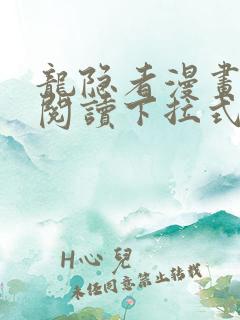 龍隐者漫畫
閱讀下拉式
H心兒
未任同意禁止转载